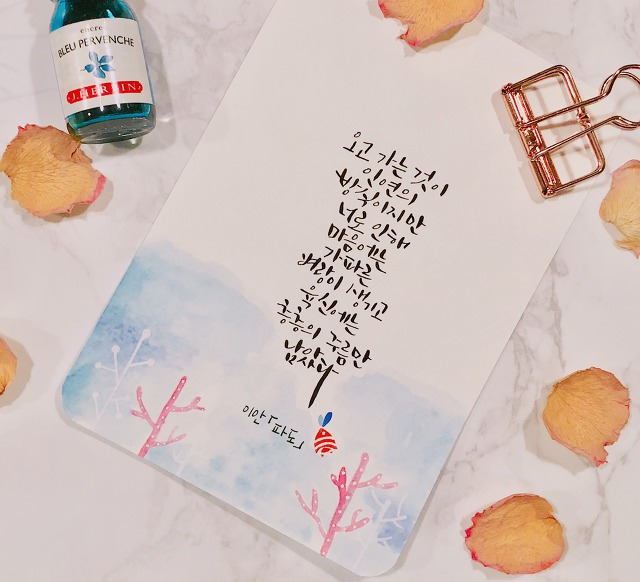 encre
BLEU PERVENCHE
J. HERBIN
오고 가는 것이
인연의
방식이지만
너로 인해
마음에는
가파른
벼랑이 생기고
육신에는
층층의 주름만
남았다
이안「파도」